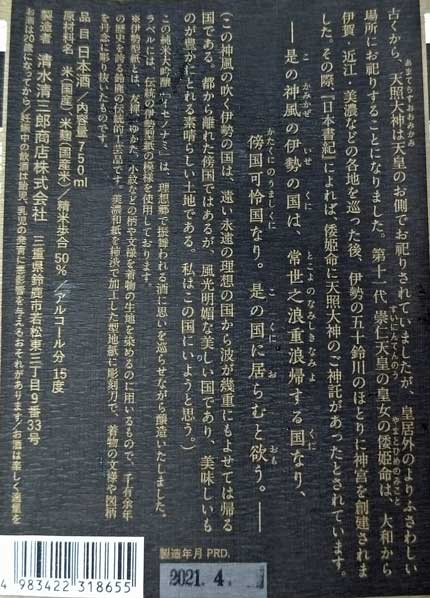 あまてらすおおみかみ
古くから、天照大神は天皇のお側でお祀りされていましたが、皇居外のよりふさわしい
すいにんてんのう やまとひめのみこと
場所にお祀りすることになりました。第十一代 垂仁天皇の皇女の倭姫命は、大和から
伊賀・近江・美濃などの各地を巡った後、伊勢の五十鈴川のほとりに神宮を創建されま
した。その際、『日本書記』によれば、倭姫命に天照大神のご神託があったとされています。
こ かみかぜ いせ くに とこよのなみしきなみよ くに
―是の神風の伊勢の国は、常世之浪重浪帰する国なり、
かたくにのうましくに こ くに お おも
傍国可怜国なり。是の国に居らむと欲う。―
(この神風の吹く伊勢の国は、遠い永遠の理想の国から波が幾重にもよせては帰る
国である。都から離れた傍国ではあるが、風光明媚な美しい国であり、美味しいも
のが豊かにとれる素晴らしい土地である。私はこの国にいようと思う。)
この純米大吟醸「イセノナミ」は、理想郷で振舞われる酒に思いを巡らせながら醸造いたしました。
ラベルには、伝統の伊勢型紙の模様を使用しております。
東伊勢型紙とは、友禅、ゆかた、小紋などの柄や文様を着物の生地を染めるのに用いるもので、千有余年
の歴史を誇る鈴鹿の伝統的工芸品です。美濃和紙を柿渋で加工した型地紙に彫刻刀で、着物の文様や図柄
を丹念に彫り抜いたものです。
品目 日本酒/内容量750ml
原材料名 米(国産)、米麹(国産米)/精米歩合50%/アルコール分15度
製造者 清水清三郎商店株式会社 三重県鈴鹿市若松東三丁目9番33号
お酒は20歳になってから/妊娠中の飲酒は胎児、乳児の発育に悪影響を与えるおそれがあります/お酒は楽しく適量を
製造年月 PRD.
2021.4.
4 983422 318655